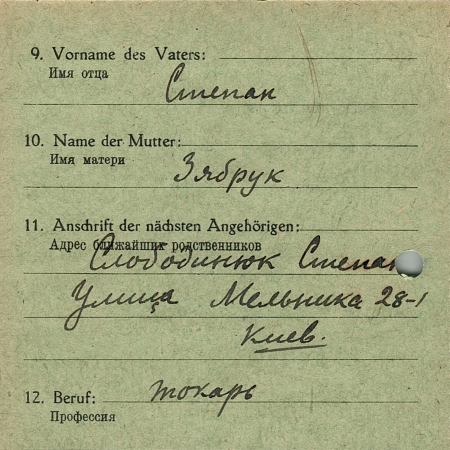 9. Vorname des Vaters:
Имя отца
Степан
10. Name der Mutter:
Имя матери
Зябрук
11. Anschrift der nächsten Angehörigen:
Адрес ближайших родственников
Слободинюк Степан
Улица Мельника 28-1
Киев.
12. Beruf: токарь
Профессия